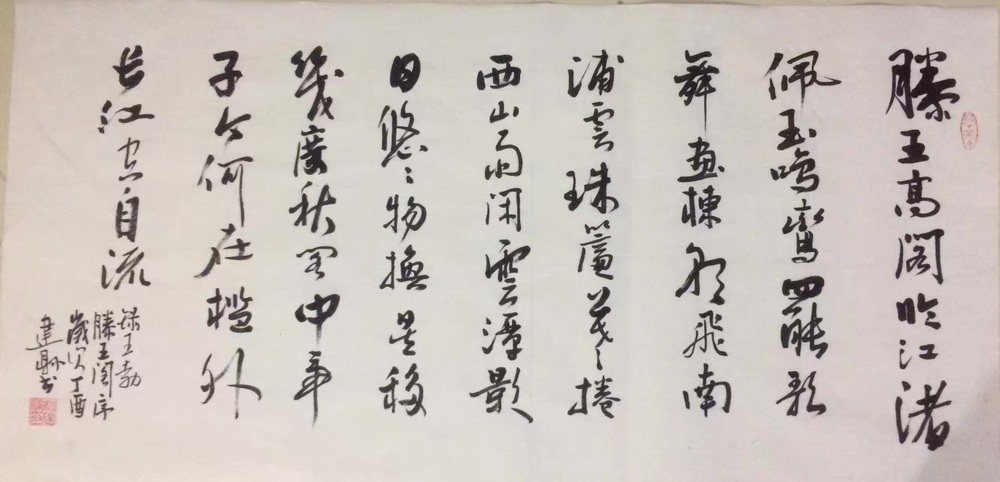 滕王高阁临江渚
佩玉鸣鸾罢歌
舞画栋朝飞南
浦雲珠簾暮捲
西山雨闲雲潭影
日悠々物换星移
幾度秋阁中帝
子今何在槛外
长江空自流
录王勃
滕王阁序
岁次丁酉
建 书